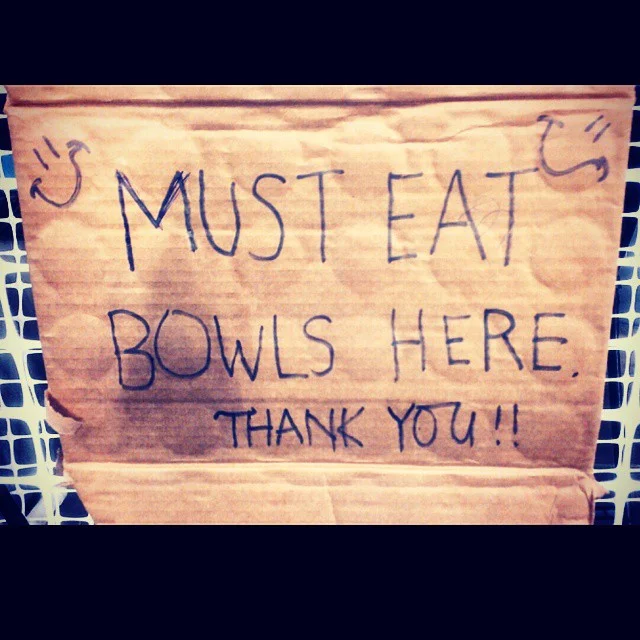 MUST EAT
BOWLS HERE.
THANK YOU!!